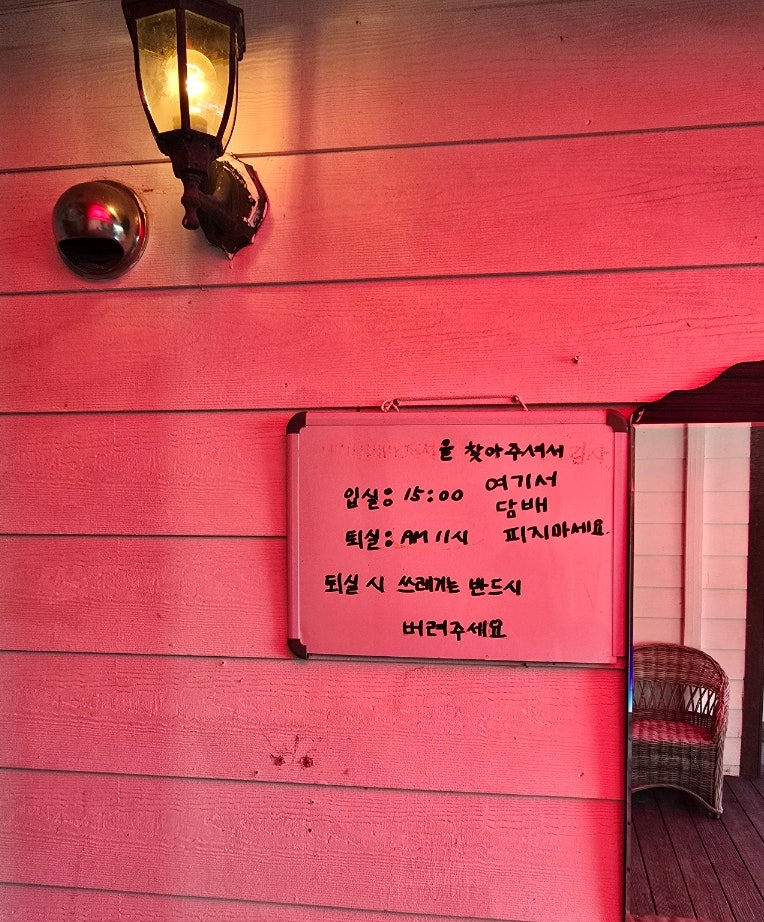 을 찾아주셔서 감사
입실: 15:00 여기서
담배
퇴실: AM 11시 피지마세요.
퇴실 시 쓰레기는 반드시
버려주세요